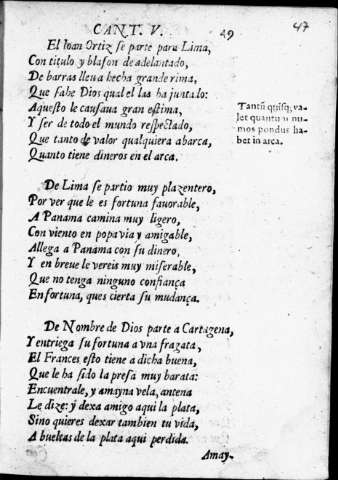 CANT. V. 49 47
El Ioan Ortiz se parte para Lima,
Con titulo y blason de adelantado,
De barras lleua hecha grande rima,
Que sabe Dios qual el las ha juntado:
Aquesto le causaua gran estima,
Y ser de todo el mundo respectado,
Que tanto de valor qualquiera abarca,
Quanto tiene dineros en el arca.
Tantũ quisq; va-
let quantu u nu-
mos pondus ha-
bet in arca.
De Lima se partio muy plazentero,
Por ver que le es fortuna fauorable,
A Panama camina muy ligero,
Con viento en popa via y amigable,
Allega a Panama con su dinero,
Y en breue le vereis muy miserable,
Que no tenga ninguno confiança
En fortuna, ques cierta su mudança.
De Nombre de Dios parte a Cartagena,
Y entriega su fortuna a vna fragata,
El Frances, esto tiene a dicha buena,
Que le ha sido la presa muy barata:
Encuentrale, y amayna vela, antena
Le dize: y dexa amigo aqui la plata,
Sino quieres dexar tambien tu vida,
A bueltas de la plata aqui perdida.
Amay-